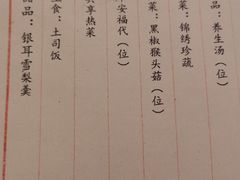 品：养生汤（位）
菜：锦绣珍蔬
菜：黑椒猴头菇（位）
安福代（位）
享热菜
食：土司饭
品：银耳雪梨羹